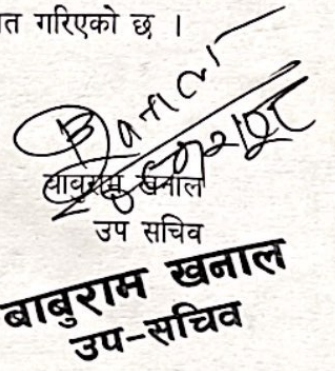 त गरिएको छ ।
बाबुराम खनाल
उप सचिव
बाबुराम खनाल
उप-सचिव